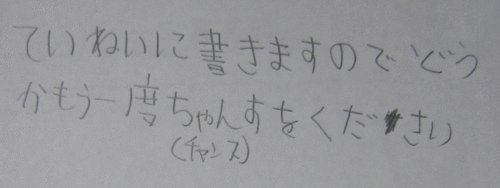 ていねいに書きますのでどう
かもう一度ちゃんすをください
(チャンス)